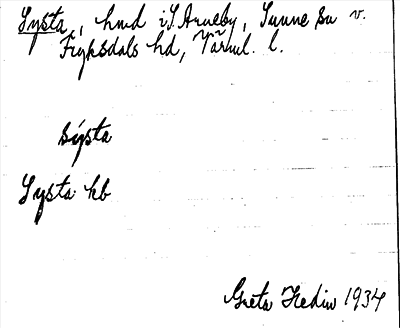 Systa, hmd i S. Arneby, Sunne sn v.
Fryksdals hd, Värml. l.
sýsta
Systa hb
Greta Hedin 1934